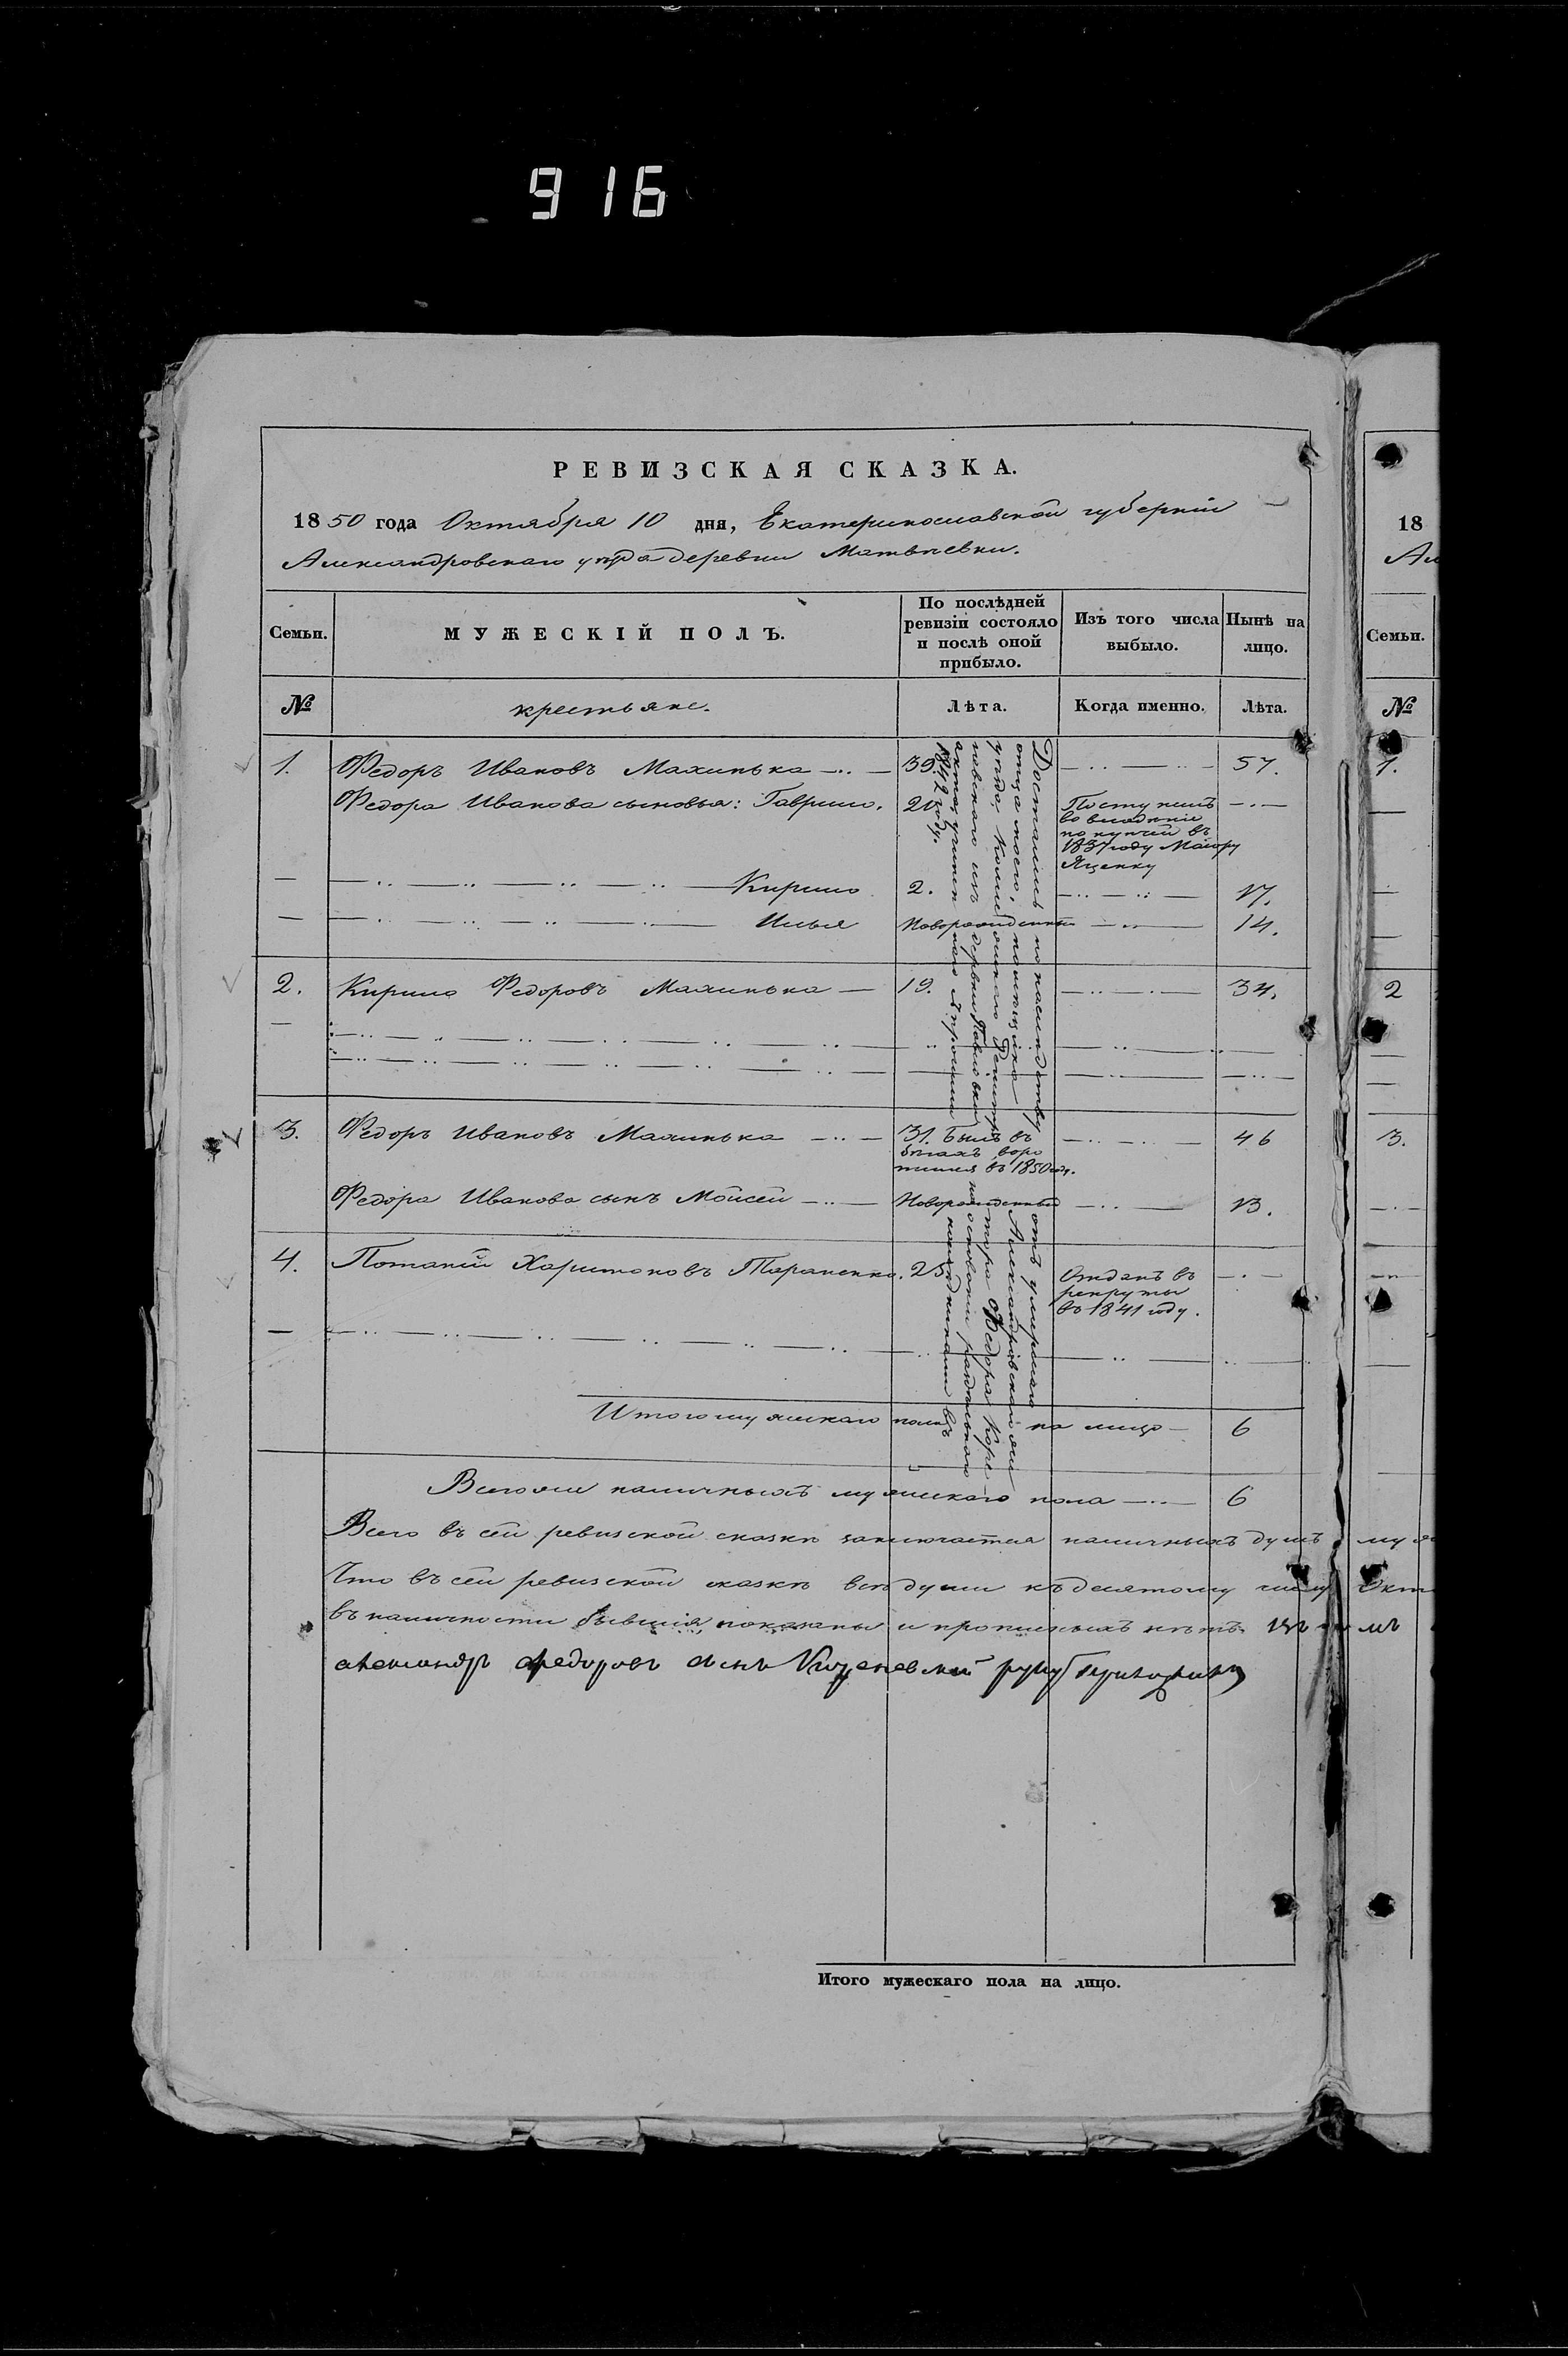 916
РЕВИЗСКАЯ СКАЗКА.
1850 года Октября 10 дня, Екатеринославской губерніи
Александровскаго уѣзда деревни Матвѣевки.
Семьи.
МУЖЕСКІЙ ПОЛЪ.
По послѣдней ревизіи состояло и послѣ оной прибыло.
Изъ того числа выбыло.
Нынѣ на лицо.
№
крестьяне.
Лѣта.
Когда именно.
Лѣта.
1. Федоръ Ивановъ Махинька 39. 57.
Федора Иванова сыновья: Гаврило. 20 Поступилъ
во владѣніе
по купчей въ
1837 году Маіору
Яценку
Кирило 2. 17.
Илья Новорожденный 14.
2. Кирило Федоровъ Махинька 19. 34.
3. Федоръ Ивановъ Махинька 31. Былъ въ 46
бѣгахъ, воро
тился въ 1850 году.
Федора Иванова сынъ Мойсей Новорожденный 13.
4. Потапій Харитоновъ Тараненко. 25 Отданъ въ
рекруты
въ 1841 году.
Достались по наслѣдству отъ умершаго
отца моего, помѣщика Александровскаго
уѣзда,
деревни Павловки на основаніи раздѣльнаго
акта
1842 году.
Итого мужескаго пола на лицо 6
Всего же наличныхъ мужескаго пола 6
Всего въ сей ревизской сказкѣ заключается наличныхъ душъ
Что въ сей ревизской сказкѣ всѣ души къ десятому числу
въ наличности бывшія, показаны и прописныхъ нѣтъ.
Александръ Федоровъ сынъ руку приложилъ
Итого мужескаго пола на лицо.
18
Семьи.
№
1.
2
3.